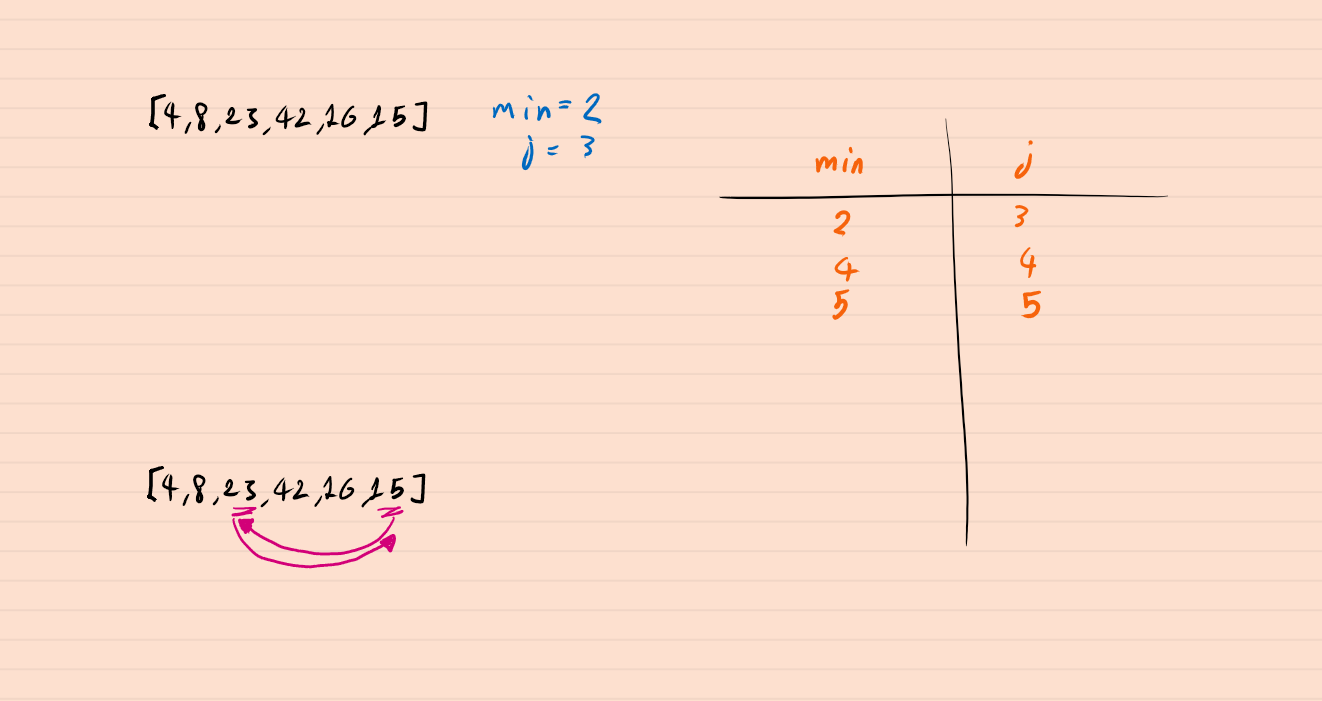 [4,8,23,42,16,15]
min=2
j=3
min j
2 3
4 4
5 5
[4,8,23,42,16,15]